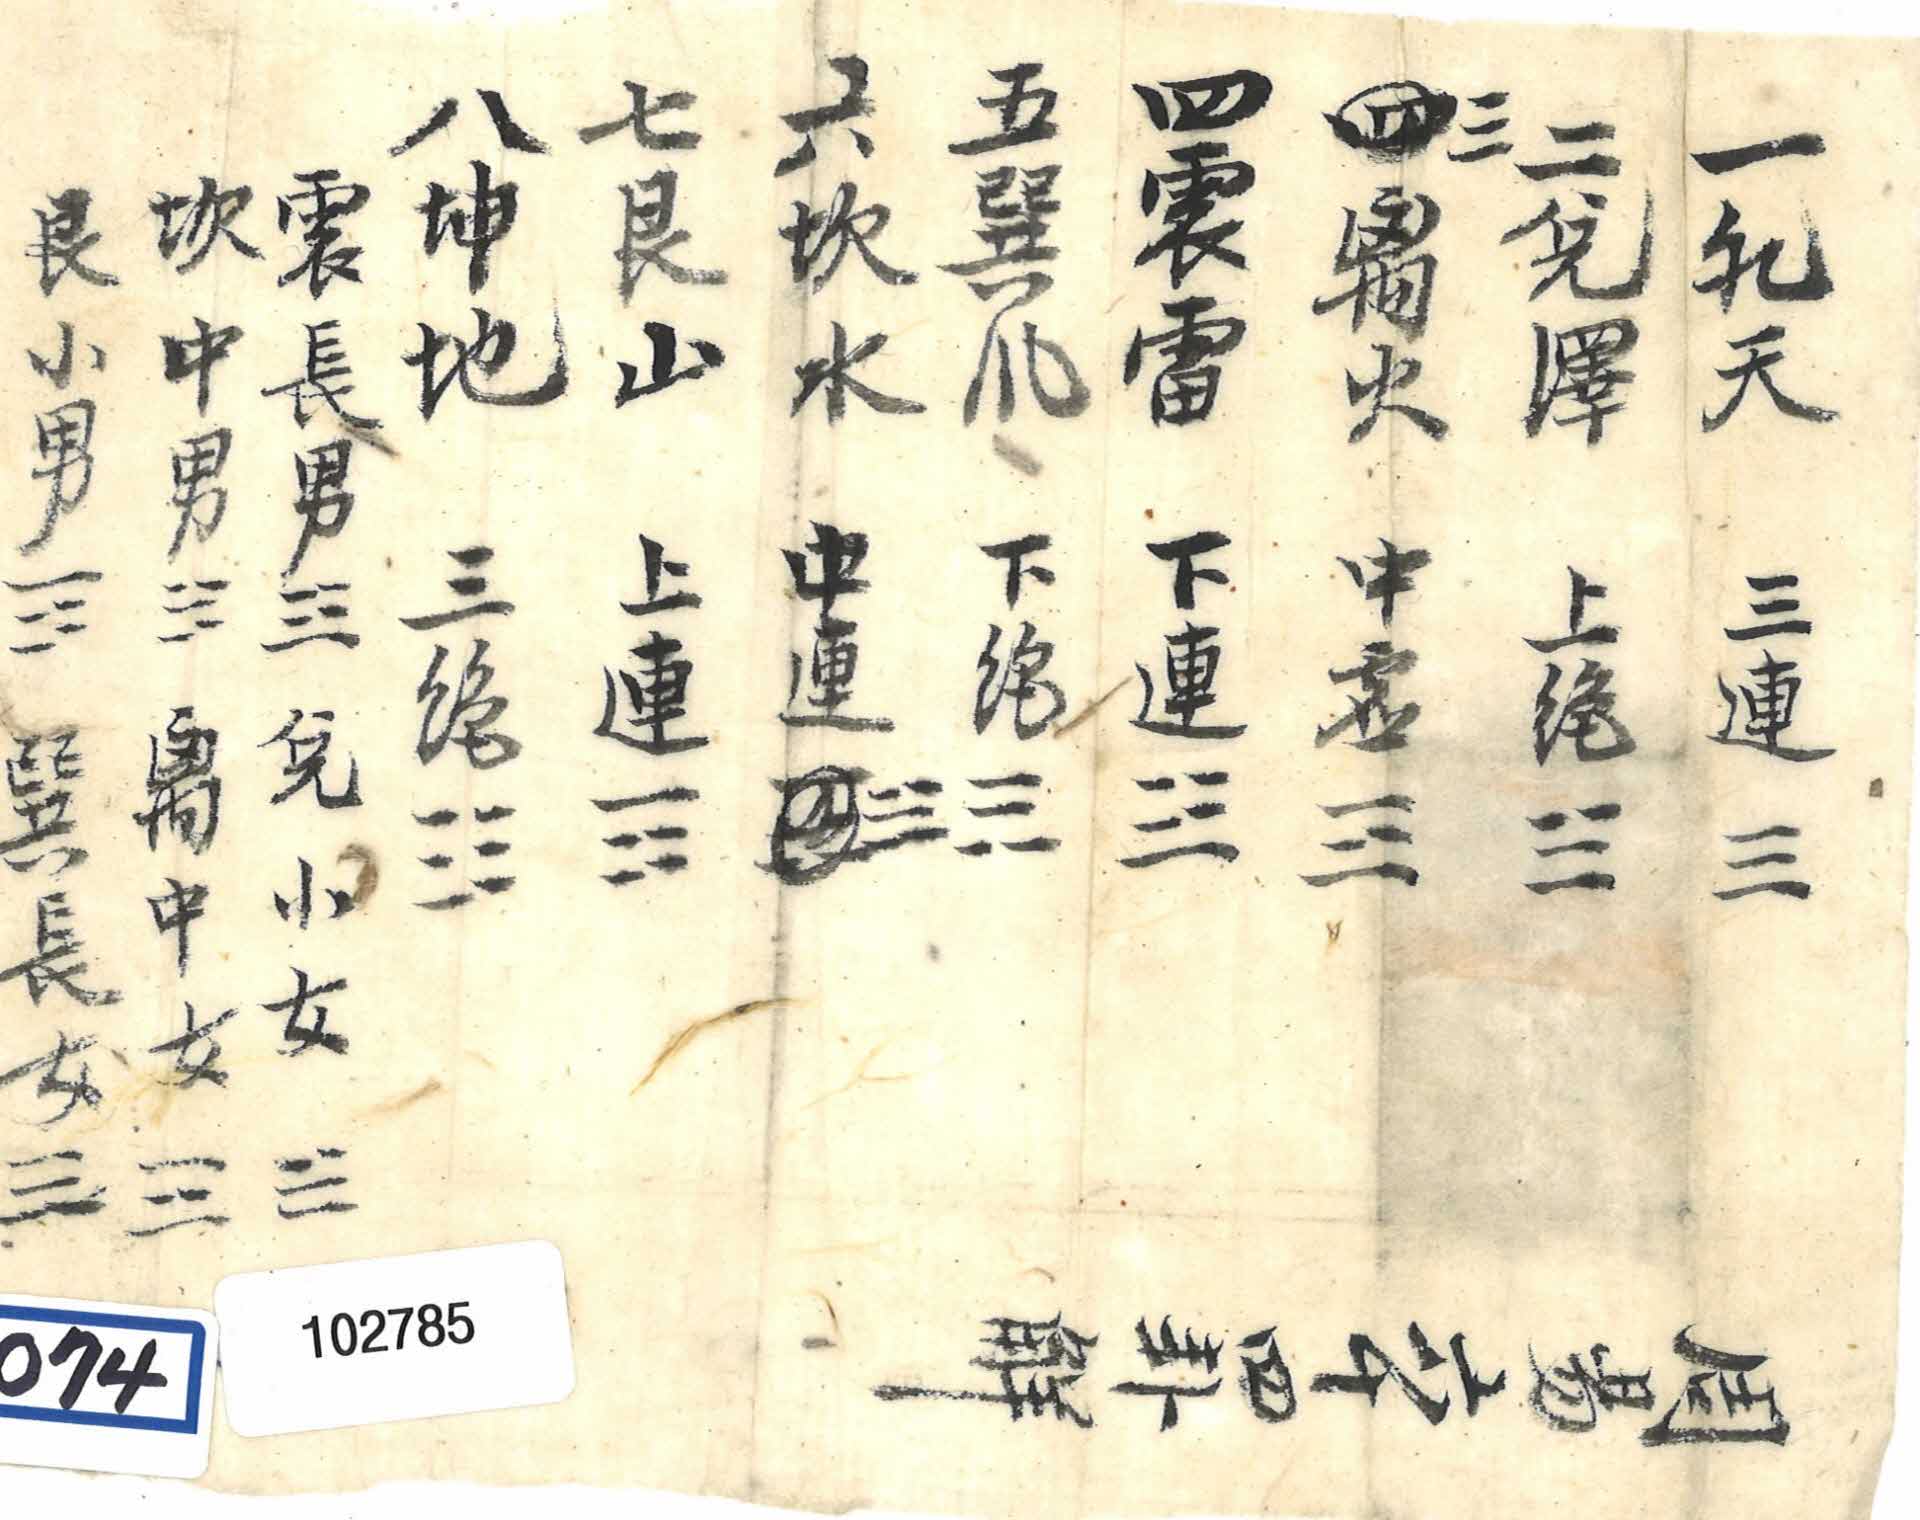 一乾天 三連 ☰
二兌澤 上絶 ☱
三離火 中虛 ☲
四震雷 下連 ☳
五巽風 下絶 ☴
六坎水 中連 ☵
七艮山 上連 ☶
八坤地 三絶 ☷
震長男 ☳ 兌小女 ☱
坎中男 ☵ 離中女 ☲
艮小男 ☶ 巽長女 ☴
周易六十四卦解
102785
074